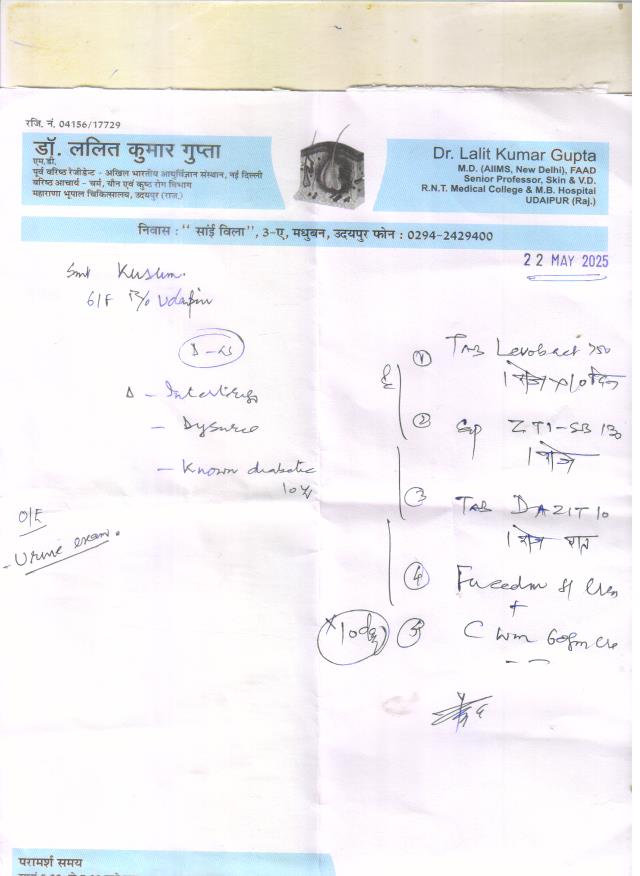 रजि. नं. 04156/17729
डॉ. ललित कुमार गुप्ता
एम.डी.
पूर्व वरिष्ठ रेजीडेन्ट - अखिल भारतीय आयुर्विज्ञान संस्थान, नई दिल्ली
वरिष्ठ आचार्य - चर्म, यौन एवं कुष्ठ रोग विभाग
महाराणा भूपाल चिकित्सालय, उदयपुर (राज.)
Dr. Lalit Kumar Gupta
M.D. (AIIMS, New Delhi), FAAD
Senior Professor, Skin & V.D.
R.N.T. Medical College & M.B. Hospital
UDAIPUR (Raj.)
निवास : '' सांई विला'', 3-ए, मधुबन, उदयपुर फोन : 0294-2429400
22 MAY 2025
Smt Kusum.
61F R/o Udaipur
Δ - Intertrigo
- Dysuria
- Known diabetic
10 y
O/E
- Urine exam.
① TAB Levobact 750
1 रोज x 10 दिन
② Cap ZTI-SB 130
1 रोज
③ TAB DAZIT 10
1 रोज
④
+
x 10 day ⑤
परामर्श समय